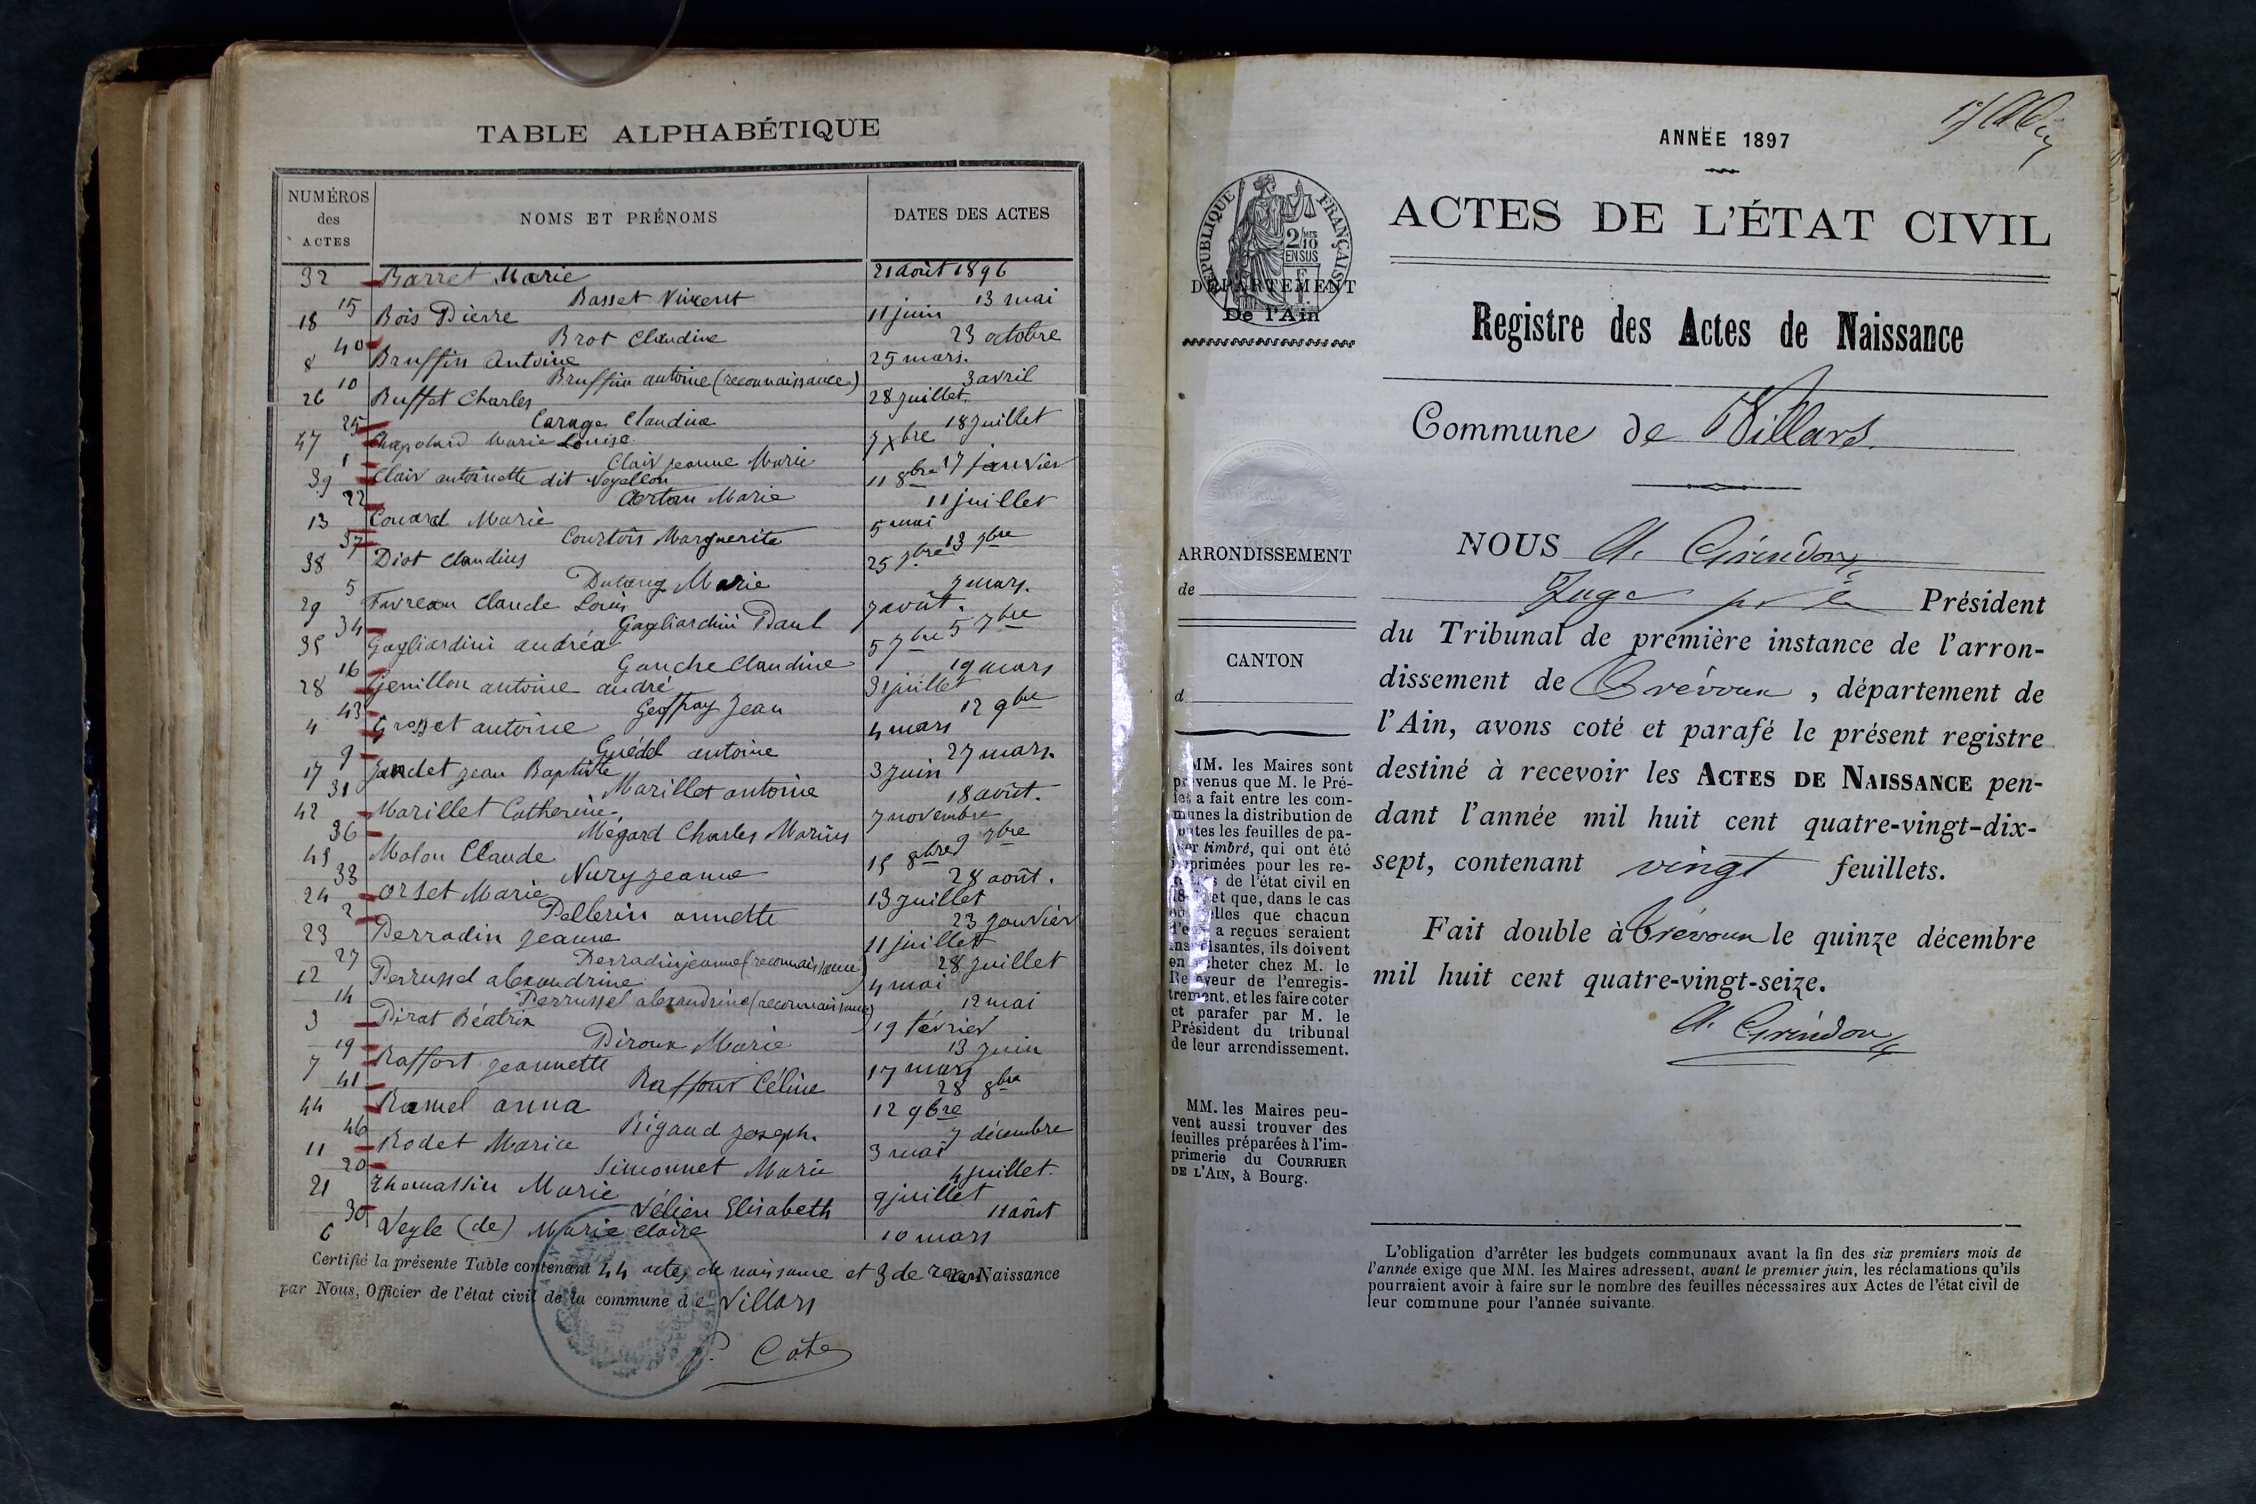 TABLE ALPHABÉTIQUE
NUMÉROS des ACTES
NOMS ET PRÉNOMS
DATES DES ACTES
32 Barret Marie 21 août 1896
15 Basset Vincent 13 mai
18 Bois Pierre 11 juin
40 Brot Claudine 23 octobre
8 Bruffin Antoine 25 mars.
10 Bruffin antoine (reconnaissance) 3 avril
26 Buffet Charles 28 juillet.
25 Carage Claudine 18 juillet
47 Chapolard Marie Louise 7 Xbre
1 Clair jeanne Marie 17 janvier
39 Clair antoinette dit Noyellon 11 8bre
22 Marie 11 juillet
13 Couard Marie 5 mai
37 Courtois Marguerite 13 7bre
38 Diot Claudius 25 7bre
5 Marie 7 mars.
29 Favreau Claude Louis 7 août.
34 Gagliardini Paul 5 7bre
35 Gagliardini andréa 5 7bre
16 Ganche Claudine 19 mars
28 Genillon antoine andré 31 juillet
43 Geoffray Jean 12 9bre
4 Grosset antoine 4 mars
9 Guédel antoine 27 mars.
17 Jandet jean Baptiste 3 juin
31 Marillet antoine 18 août.
42 Marillet Catherine. 7 novembre
36 Mégard Charles Marius 9 7bre
45 Molon Claude 15 9bre
33 Nury jeanne 28 août.
24 Orset Marie 13 juillet
2 Pellerin annette 23 janvier
23 Perradin jeanne 11 juillet
27 Perradin jeanne (reconnaissance) 28 juillet
12 Perrussel alexandrine 4 mai
14 Perrussel alexandrine (reconnaissance) 12 mai
3 Pirat Béatrix 19 février
19 Piroux Marie 13 juin
7 Raffort jeannette 17 mars
41 Raffour Céline 28 8bre
44 Ramel anna 12 9bre
46 Rigaud joseph. 7 décembre
11 Rodet Marie 3 mai
20 Simonnet Marie 4 juillet.
21 Thomassin Marie 9 juillet
30 Vélien Elisabeth 11 août
6 Veyle (de) Marie Claire 10 mars
Certifié la présente Table contenant 44 actes de naissance et 3 de Naissance
par Nous, Officier de l'état civil de la commune de Villars
P. Cote
ANNÉE 1897
ACTES DE L'ÉTAT CIVIL
RÉPUBLIQUE FRANÇAISE
2/10 MES EN SUS
DÉPARTEMENT
De l'Ain
Registre des Actes de Naissance
Commune de Villars
ARRONDISSEMENT
de
CANTON
d
MM. les Maires sont
prévenus que M. le Pré-
fet a fait entre les com-
munes la distribution de
toutes les feuilles de pa-
pier timbré, qui ont été
imprimées pour les re-
de l'état civil en
et que, dans le cas
elles que chacun
a reçues seraient
insuffisantes, ils doivent
en acheter chez M. le
Receveur de l'enregis-
trement, et les faire coter
et parafer par M. le
Président du tribunal
de leur arrondissement.
MM. les Maires peu-
vent aussi trouver des
feuilles préparées à l'im-
primerie du COURRIER
DE L'AIN, à Bourg.
NOUS A. Grindon,
Juge pr le Président
du Tribunal de première instance de l'arron-
dissement de Trévoux, département de
l'Ain, avons coté et parafé le présent registre
destiné à recevoir les ACTES DE NAISSANCE pen-
dant l'année mil huit cent quatre-vingt-dix-
sept, contenant vingt feuillets.
Fait double à Trévoux le quinze décembre
mil huit cent quatre-vingt-seize.
A. Grindon
L'obligation d'arrêter les budgets communaux avant la fin des six premiers mois de
l'année exige que MM. les Maires adressent, avant le premier juin, les réclamations qu'ils
pourraient avoir à faire sur le nombre des feuilles nécessaires aux Actes de l'état civil de
leur commune pour l'année suivante.